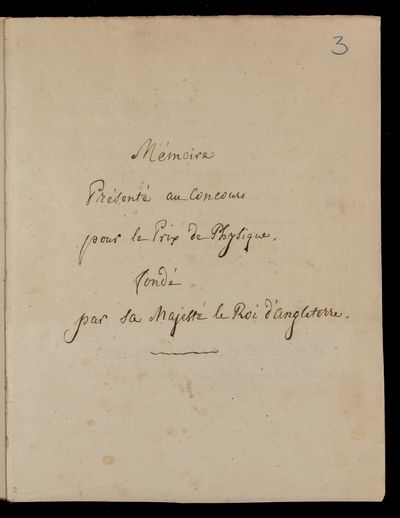 3
Mémoire
Présenté au Concours
pour le Prix de Physique,
fondé
par sa Majesté le Roi d'Angleterre.